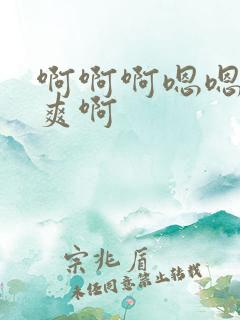 啊啊啊嗯嗯
爽啊
宗兆盾
未经同意禁止转载